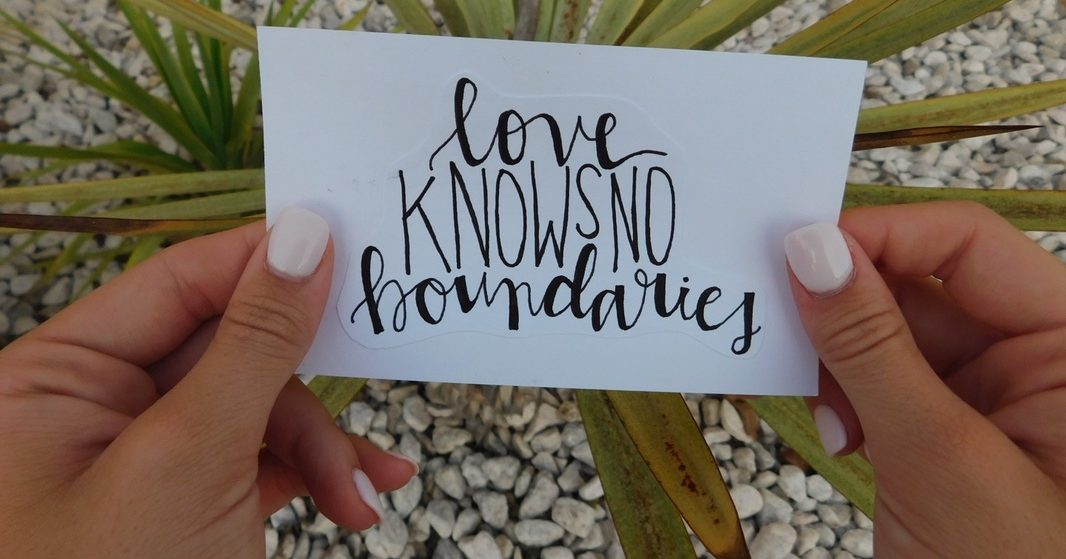 love
KNOWS NO
boundaries